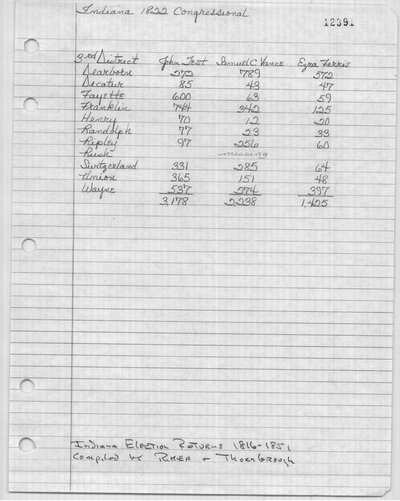 Indiana 1822 Congressional
12391
3rd District John Test Samuel C. Vance Ezra Farris
Dearborn 272 789 572
Decatur 85 43 47
Fayette 600 63 59
Franklin 744 342 125
Henry 70 12 20
Randolph 77 23 33
Ripley 97 256 60
Rush missing
Switzerland 331 285 64
Union 365 151 48
Wayne 537 274 397
3,178 2,238 1,425
Indiana Election Returns 1816-1851
Compiled by Riker + Thornbrough